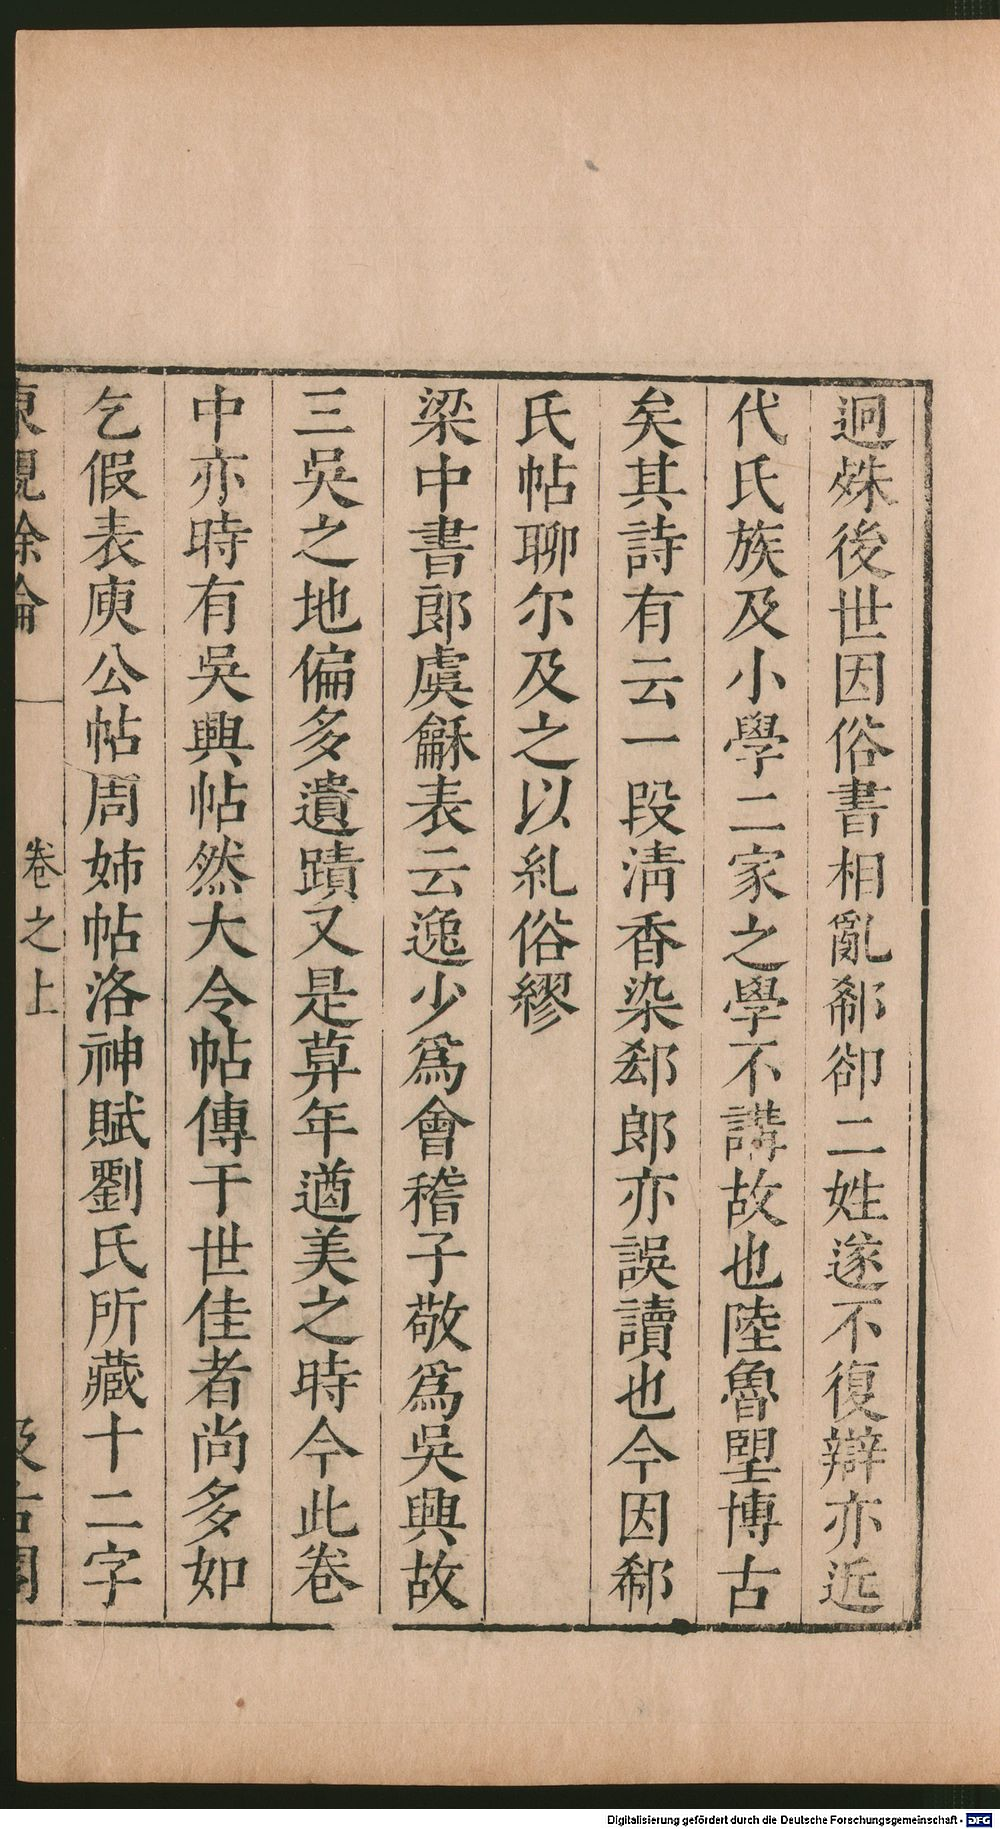 迥殊後世因俗書相亂郗卻二姓遂不復辯亦近
代氏族及小學二家之學不講故也陸魯朢博古
矣其詩有云一段淸香染郄郎亦誤讀也今因郗
氏帖聊尔及之以糺俗繆
梁中書郎虞龢表云逸少爲會稽子敬爲吳興故
三吳之地偏多遺蹟又是暮年遒美之時今此卷
中亦時有吳興帖然大令帖傳于世佳者尚多如
乞假表庾公帖周姊帖洛神賦劉氏所藏十二字
東觀餘論
卷之上
汲古閣
Digitalisierung gefördert durch die Deutsche Forschungsgemeinschaft - DFG